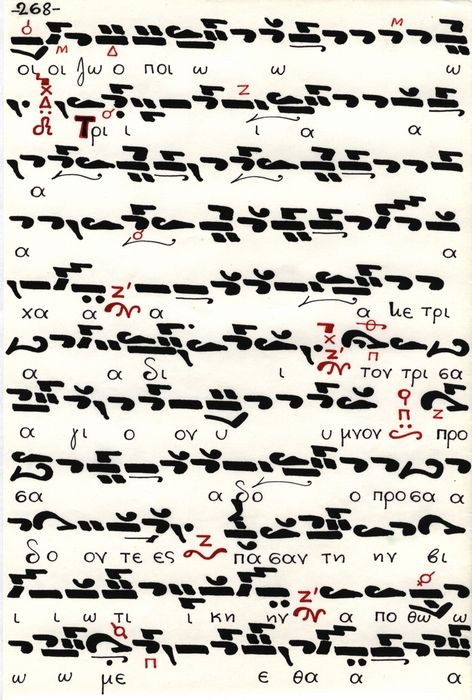 -268-
οι οι ζω ο ποι ω ω ω
Τρι ι ι α α
α
α α
χα α α α κε τρι
α α δι ι τον τρι σα
α γι ο ον υ υ μνον προ
σα α δο ο προ σα α
δο ον τε ες πα σαν τη ην βι
ι ι ω τι ι κη ην α πο θω ω
ω ω με ε θα α α